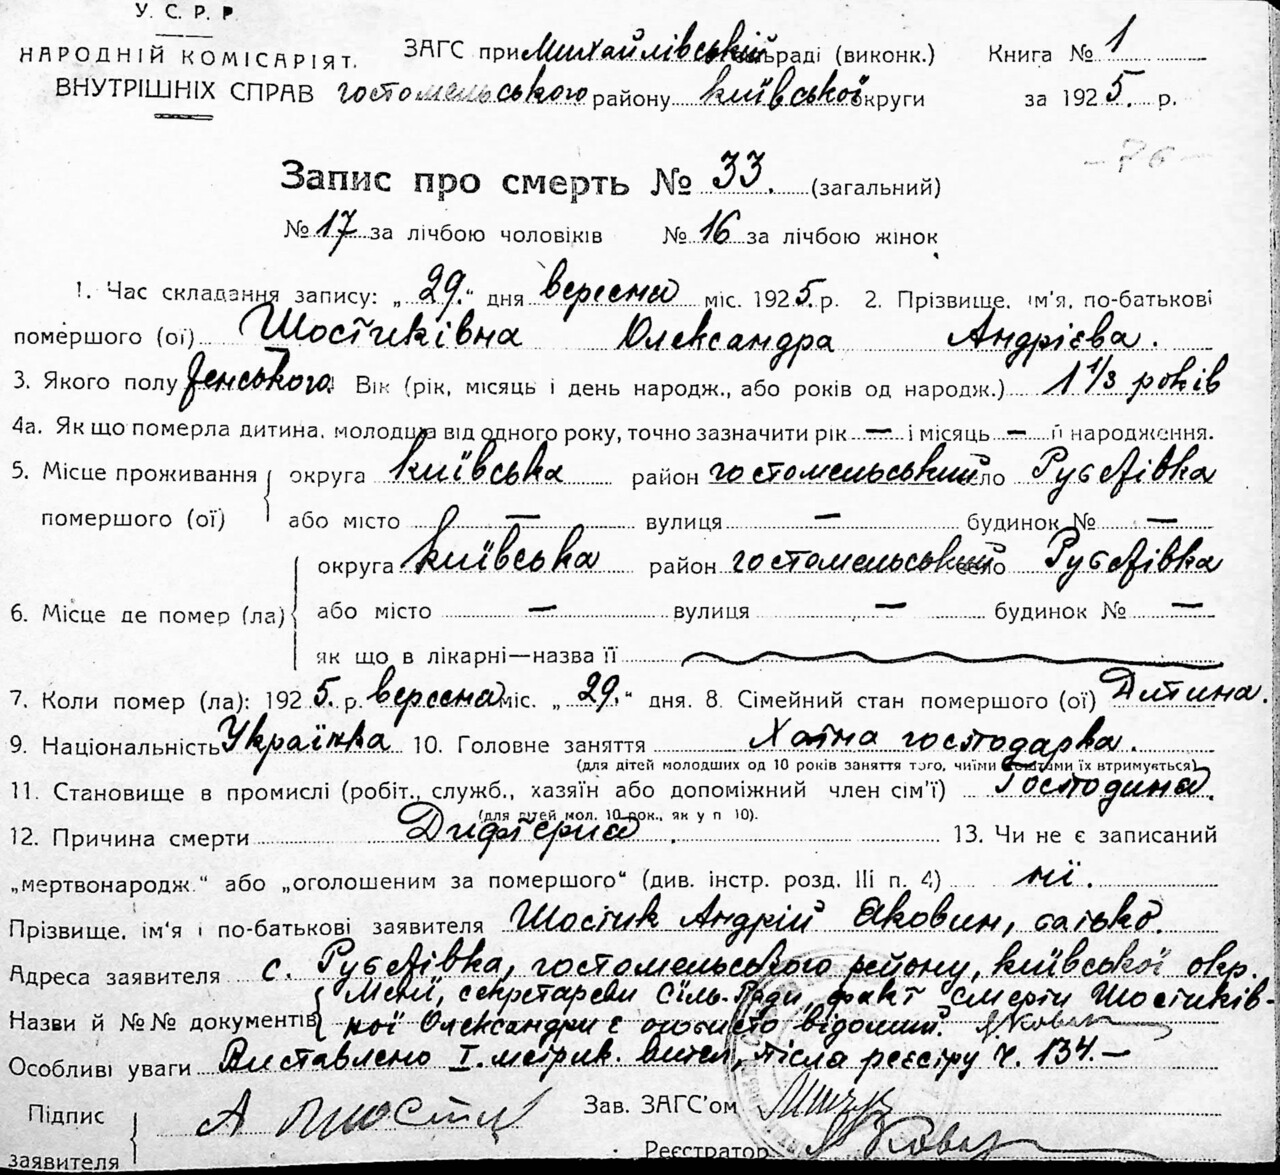 У. С. Р. Р.
НАРОДНІЙ КОМІСАРІЯТ.
ВНУТРІШНІХ СПРАВ
ЗАГС при Михайлівській раді (виконк.)
гостомельського району київської округи
Книга № 1
за 1925. р.
Запис про смерть № 33. (загальний)
№ 17 за лічбою чоловіків № 16 за лічбою жінок
1. Час складання запису: „29.“ дня вересня міс. 1925. р. 2. Прізвище, ім'я, по-батькові
помершого (ої) Шостиківна Олександра Андрієва.
3. Якого полу женського Вік (рік, місяць і день народж., або років од народж.) 1 1/3 років
4а. Як що померла дитина, молодша від одного року, точно зазначити рік — і місяць — її народження.
5. Місце проживання помершого (ої) округа київська район гостомельський село Рубежівка
або місто — вулиця — будинок № —
6. Місце де помер (ла) округа київська район гостомельський село Рубежівка
або місто — вулиця — будинок № —
як що в лікарні—назва її
7. Коли помер (ла): 1925. р. вересня міс. „29.“ дня. 8. Сімейний стан помершого (ої) Дитина.
9. Національність Українка 10. Головне заняття Хатня господарка.
(для дітей молодших од 10 років заняття того, чиїми коштами їх втримується)
11. Становище в промислі (робіт., служб., хазяїн або допоміжний член сім'ї) Господиня.
(для дітей мол. 10 рок., як у п 10).
12. Причина смерти Дифтерия. 13. Чи не є записаний
„мертвонародж.“ або „оголошеним за помершого“ (див. інстр. розд. III п. 4) ні.
Прізвище, ім'я і по-батькові заявителя Шостик Андрій Яковин, батько.
Адреса заявителя с. Рубежівка, гостомельського району, київської окр.
Назви й №№ документів Мені, секретареві Сіль-Ради, факт смерти Шостиків-
ної Олександри є особисто відомий.
Особливі уваги Виставлено І. метрик. витяг, після реєстру ч. 134.—
Підпис заявителя А Шостик
Зав. ЗАГС'ом
Реєстратор